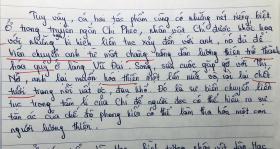 Tuy vậy, cả hai tác phẩm cũng có những nét riêng biệt
Ở trong truyện ngắn Chí Phèo, nhân vật Chí được khắc hoạ
với những bi kịch liên tục xảy đến với anh, nó đã để
chuyển anh từ một chàng nông dân lương thiện trở thành
quỷ ở làng Vũ Đại. Song, sau cuộc gặp gỡ với Thị
Nở anh lại muốn hoà thiện một lần nữa và sau lại chết
tức trong nỗi vất vả, đau khổ. Đó là sự biến chuyển liên
tục trong tâm lí của Chí để người đọc có thể hiểu ra sự
tàn ác của chế độ phong kiến có thể làm tha hoá một con
người lương thiện.